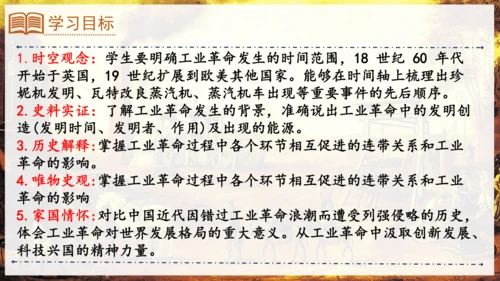 学习目标
1.时空观念:学生要明确工业革命发生的时间范围，18 世纪 60 年代
开始于英国，19 世纪扩展到欧美其他国家。能够在时间轴上梳理出珍
妮机发明、瓦特改良蒸汽机、蒸汽机车出现等重要事件的先后顺序。
2.史料实证：了解工业革命发生的背景，准确说出工业革命中的发明创
造(发明时间、发明者、作用)及出现的能源。
3.历史解释:掌握工业革命过程中各个环节相互促进的连带关系和工业
革命的影响。
4.唯物史观:掌握工业革命过程中各个环节相互促进的连带关系和工业
革命的影响
5.家国情怀:对比中国近代因错过工业革命浪潮而遭受列强侵略的历史，
体会工业革命对世界发展格局的重大意义。从工业革命中汲取创新发展、
科技兴国的精神力量。